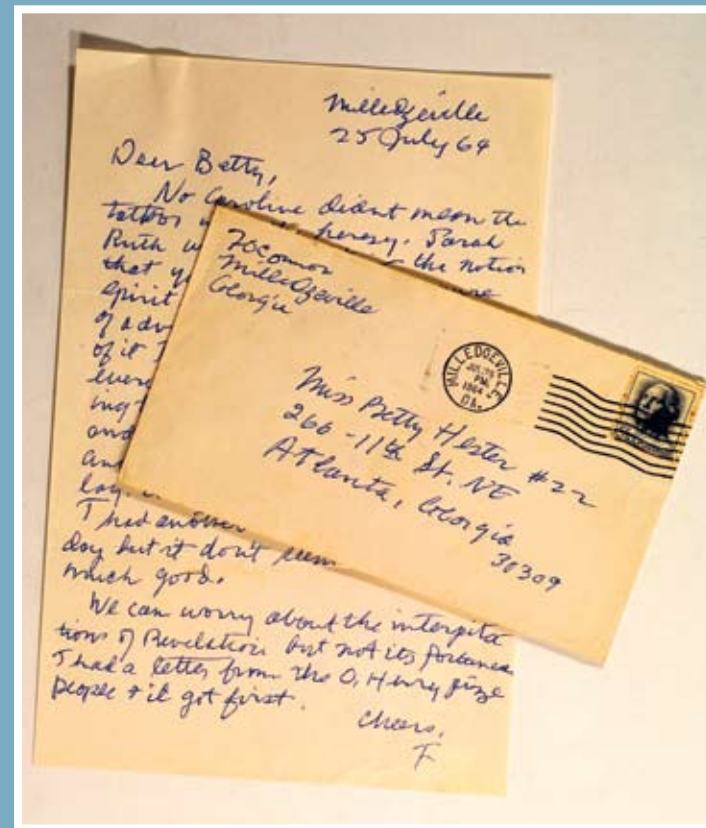 Milledgeville
25 July 64
Dear Betty,
No Caroline didnt mean the
tattoos heresy. Sarah
Ruth the notion
that
spirit
of
of it
ever
ing
and
an
lo
I had another
day but it don't seem
much good.
We can worry about the interpita
tions of Revelation but not its fortunes.
I had a letter from the O. Henry prize
people & it got first.
Cheers,
F
FOConnor
Milledgeville
Georgia
MILLEDGEVILLE
PM
1964
GA.
Miss Betty Hester #22
266-11th St. NE
Atlanta, Georgia
30309